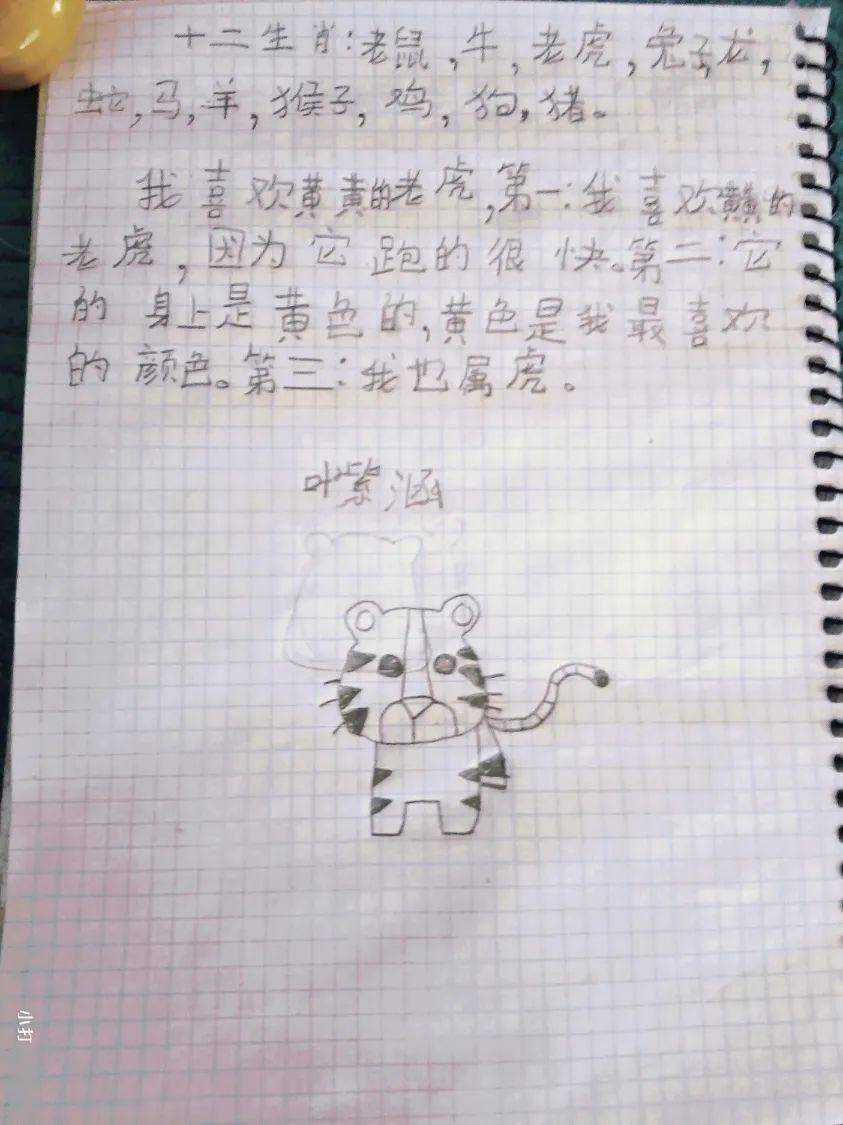 十二生肖:老鼠,牛,老虎,兔子,龙,
蛇,马,羊,猴子,鸡,狗,猪。
我喜欢黄黄的老虎,第一:我喜欢黄黄的
老虎,因为它跑的很快。第二:它
的身上是黄色的,黄色是我最喜欢
的颜色。第三:我也属虎。
叶紫涵
小打